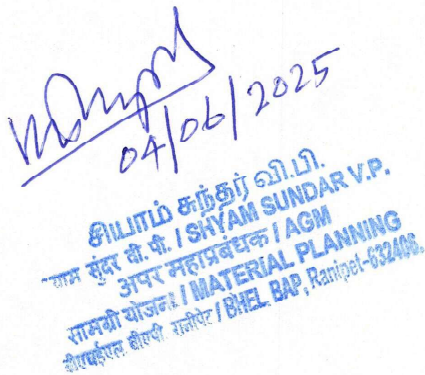 04/06/2025
சியாம் சுந்தர் வி.பி.
श्याम सुंदर वी. पी. / SHYAM SUNDAR V.P.
अपर महाप्रबंधक / AGM
सामग्री योजना / MATERIAL PLANNING
बीएचईएल बीएपी रानीपेट / BHEL BAP, Ranipet-632406.